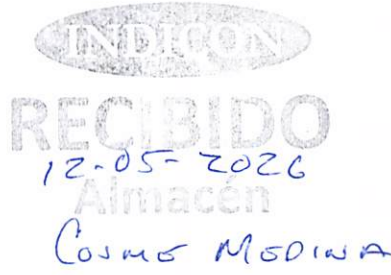 INDICON
RECIBIDO
12-05-2026
Almacén
COSME MEDINA